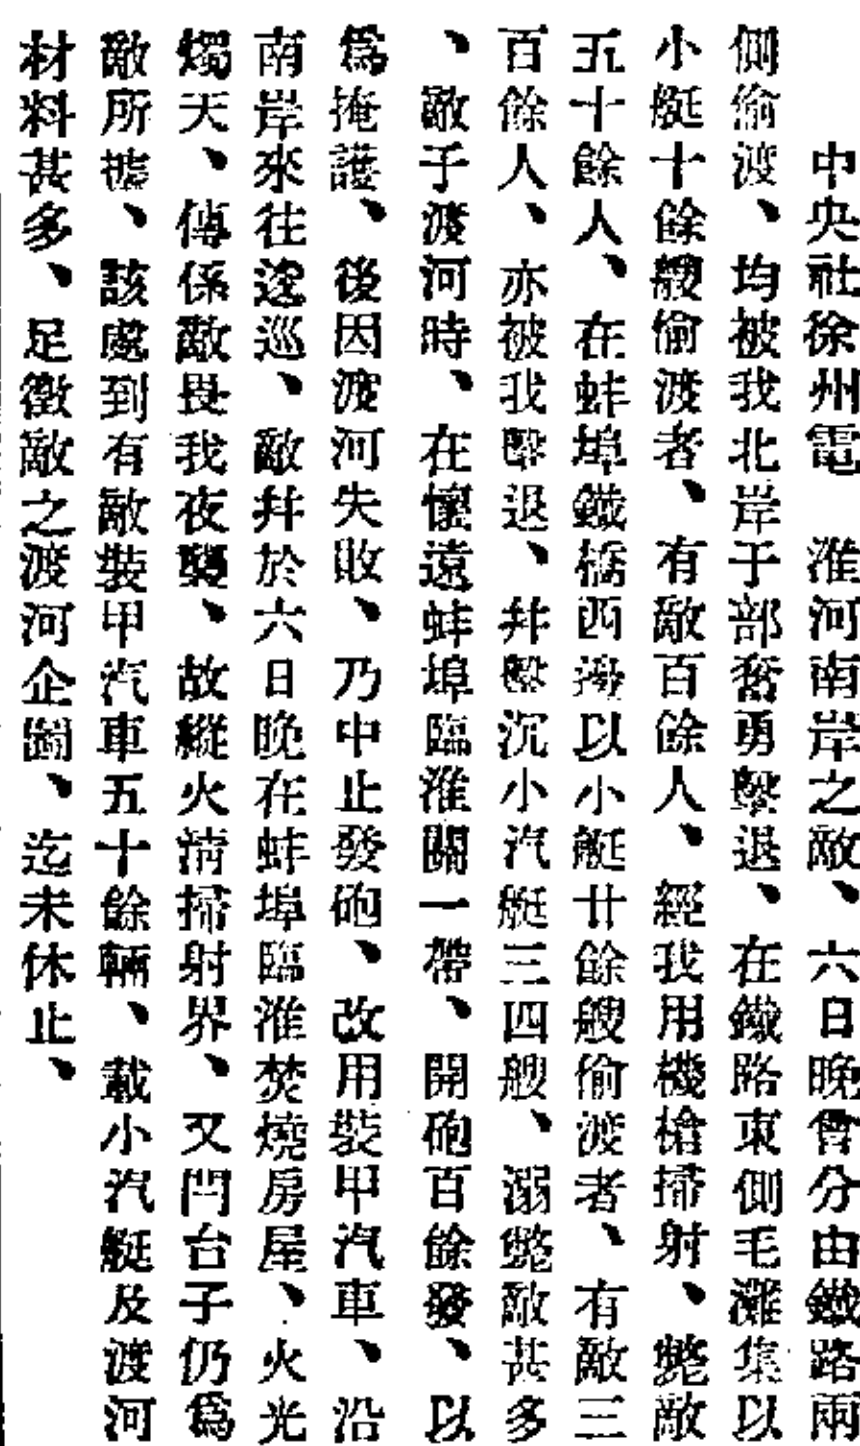 中央社徐州電　淮河南岸之敵、六日晚曾分由鐵路兩
側偷渡、均被我北岸于部奮勇擊退、在鐵路東側毛灘集以
小艇十餘艘偷渡者、有敵百餘人、經我用機槍掃射、斃敵
五十餘人、在蚌埠鐵橋西邊以小艇廿餘艘偷渡者、有敵三
百餘人、亦被我擊退、幷擊沉小汽艇三四艘、溺斃敵甚多
、敵于渡河時、在懷遠蚌埠臨淮關一帶、開砲百餘發、以
爲掩護、後因渡河失敗、乃中止發砲、改用裝甲汽車、沿
南岸來往逡巡、敵幷於六日晚在蚌埠臨淮焚燒房屋、火光
燭天、傳係敵畏我夜襲、故縱火淸掃射界、又閂台子仍爲
敵所據、該處到有敵裝甲汽車五十餘輛、載小汽艇及渡河
材料甚多、足徵敵之渡河企圖、迄未休止、